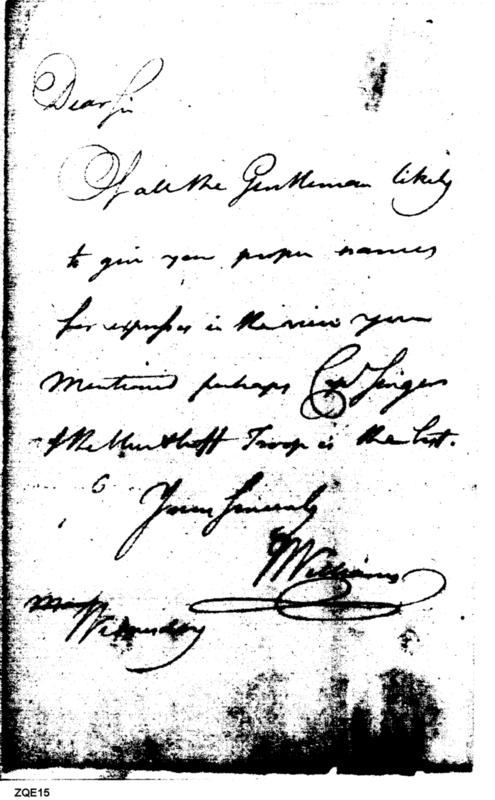 Dear Sir
Of all the Gentleman likely
to give you proper names
for expresses in the view you
Mentioned perhaps Capt Singer
of the Troop is the best.
Yours Sincerely
Williams
Wednesday
ZQE15